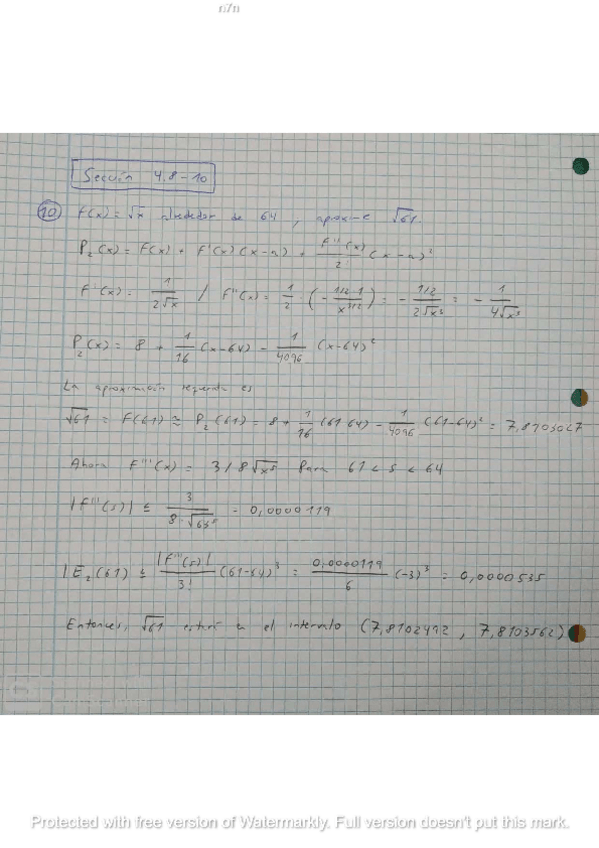 n7n
Sección 4.8-10
10) F(x) = √x alrededor de 64, aproxime √61.
P₂(x) = F(x) + F'(x)(x-a) + F''(x)/2! (x-a)²
F'(x) = 1/(2√x) / F''(x) = 1/2 · (- (1/2·1)/x^(3/2)) = - (1/2)/(2√x³) = - 1/(4√x³)
P₂(x) = 8 + 1/16 (x-64) - 1/4096 (x-64)²
La aproximación requerida es
√61 = F(61) ≅ P₂(61) = 8 + 1/16 (61-64) - 1/4096 (61-64)² = 7,8103027
Ahora F'''(x) = 3/8√x⁵ Para 61 < s < 64
|F'''(s)| ≤ 3/(8·√61⁵) = 0,0000119
|E₂(61) ≤ |F'''(s)|/3! (61-64)³ = 0,0000119/6 (-3)³ = 0,0000535
Entonces, √61 estará en el intervalo (7,8102492, 7,8103562)
Protected with free version of Watermarkly. Full version doesn't put this mark.